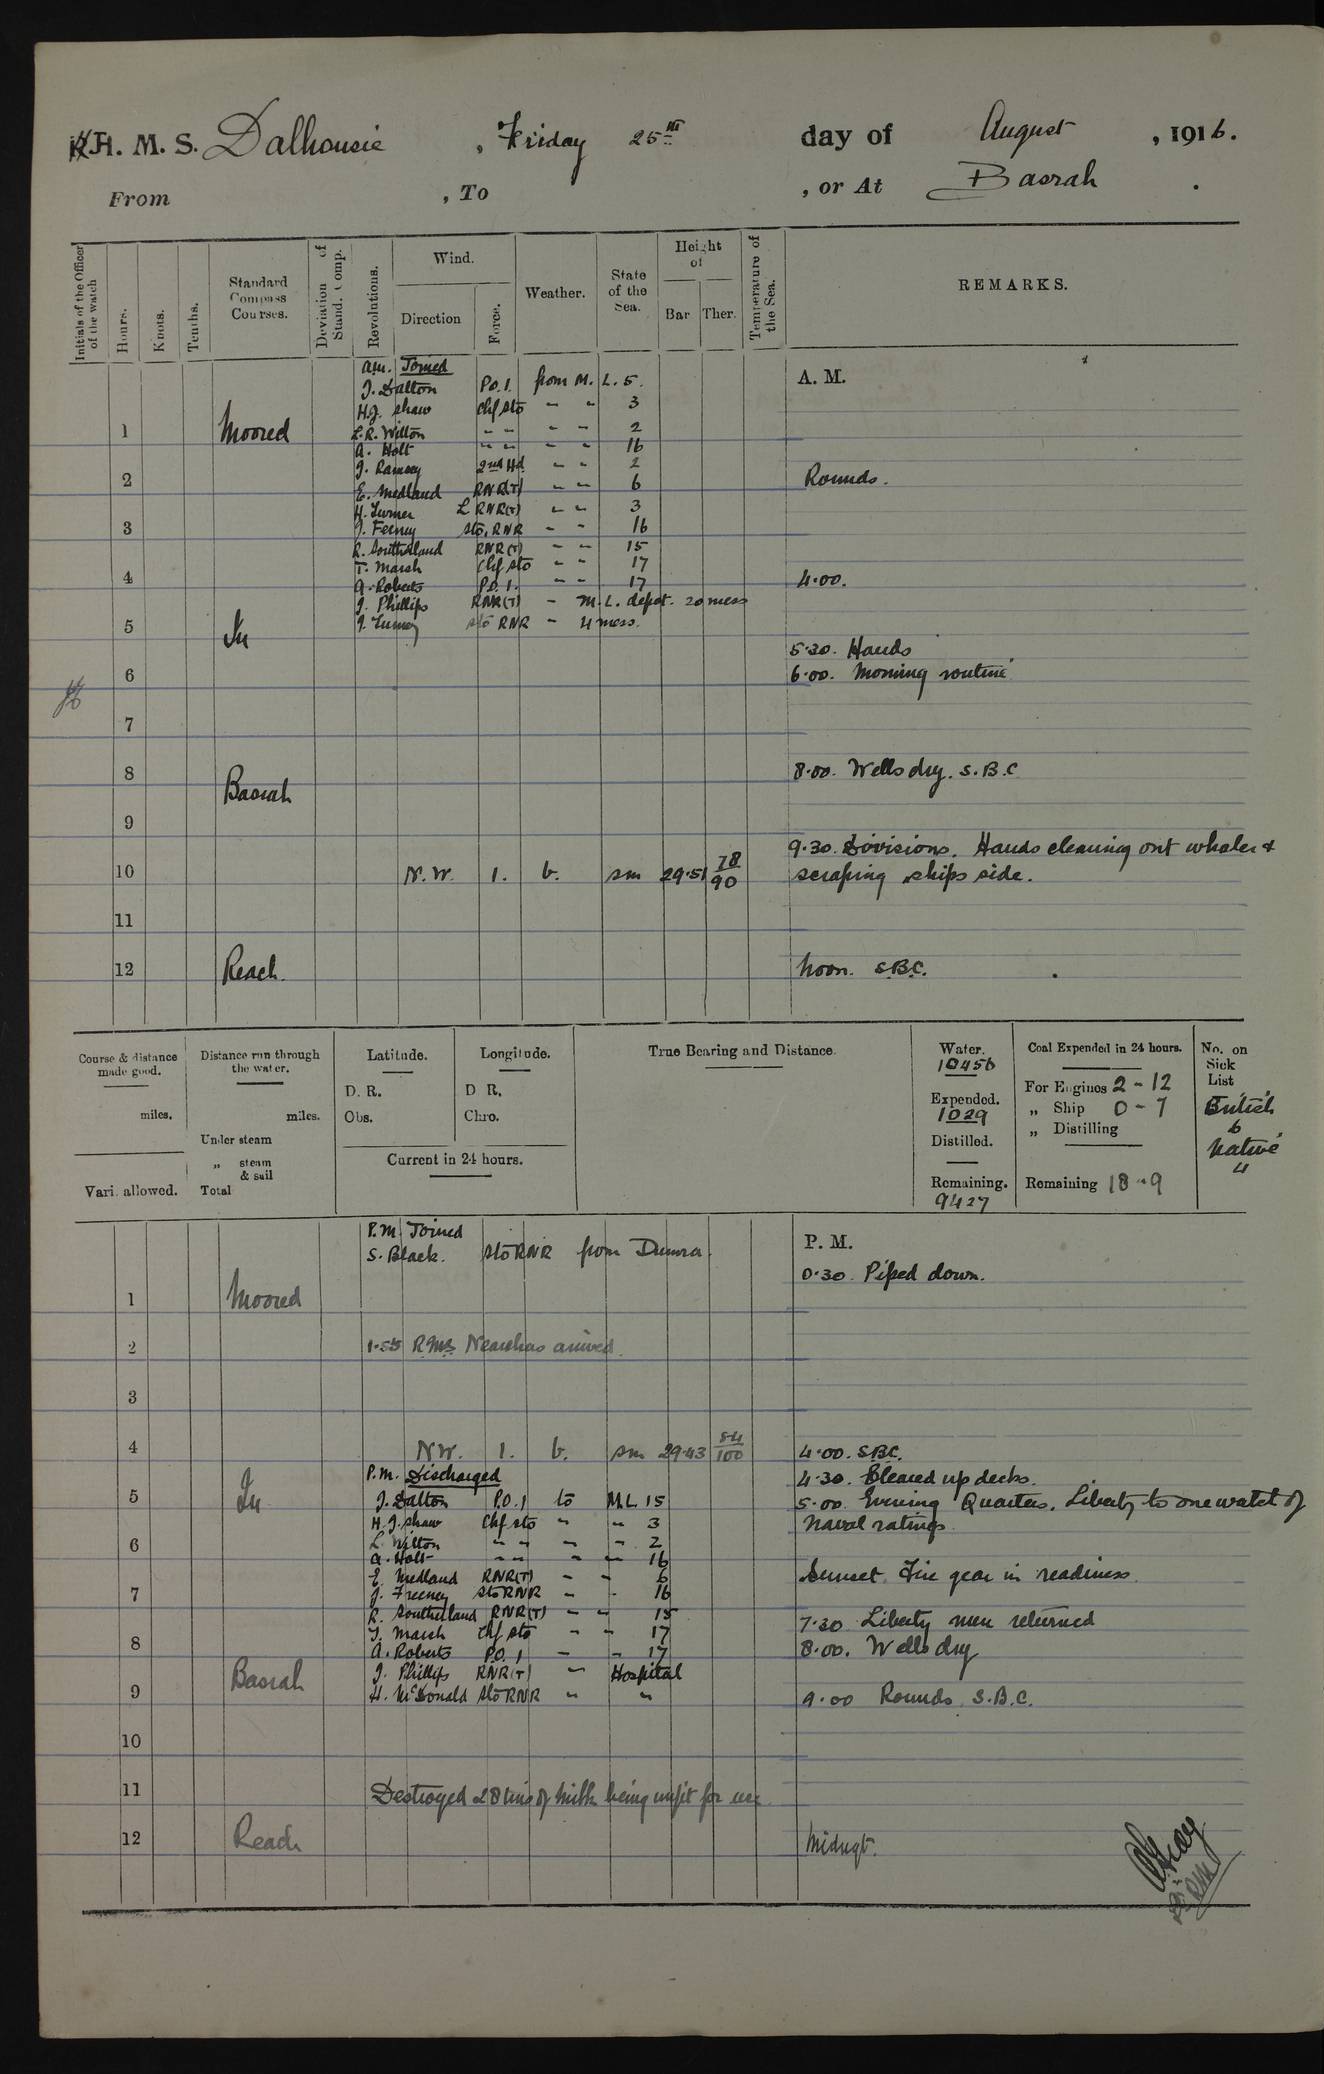 H. M. S. Dalhousie, Friday 25th day of August, 1916.
From , To , or At Basrah.
Initials of the Officer of the watch
Hours.
Knots.
Tenths.
Standard Compass Courses.
Deviation of Stand. Comp.
Revolutions.
Wind.
Direction
Force.
Weather.
State of the Sea.
Height of
Bar Ther.
Temperature of the Sea.
REMARKS.
A.M. Joined
J. Dalton P.O.1. from M. L. 5.
H.J. Shaw Chf Sto " " 3
L.R. Wilton " " " " 2
A. Holt " " " " 16
J. Ramsey 2nd Hd " " 2
E. Medland RNR(T) " " 6
H. Turner L RNR(T) " " 3
J. Feeney Sto. RNR " " 16
R. Southerland RNR(T) " " 15
T. Marsh Chf Sto " " 17
A. Roberts P.O.1. " " 17
J. Phillips RNR(T) - M.L. depot. 20 mess
Sto RNR - 4 mess.
A. M.
1 Moored
2 Rounds.
3
4 4.00.
5 In
5.30. Hands
6 6.00. Morning routine
7
8 8.00. Wells dry. S.B.C
Basrah
9
9.30. Divisions. Hands cleaning out whaler &
10 N.W. 1. b. sm 29.51 78/90 scraping ships side.
11
12 Reach. Noon. S.B.C.
Course & distance made good.
miles.
Vari. allowed.
Distance run through the water.
miles.
Under steam
" steam & sail
Total
Latitude.
D. R.
Obs.
Longitude.
D R.
Chro.
Current in 24 hours.
True Bearing and Distance.
Water.
10456
Expended.
1029
Distilled.
Remaining.
9427
Coal Expended in 24 hours.
For Engines 2-12
" Ship 0-7
" Distilling
Remaining 18-9
No. on Sick List
British
6
Native
4
P.M. Joined
S. Black. Sto RNR from Dumra.
P. M.
0.30. Piped down.
1 Moored
2 1.55 R.M.S. Nearchus arrived.
3
4 N.W. 1. b. sm 29.43 84/100 4.00. SBC.
P.M. Discharged
4.30. Cleared up decks.
5 In J. Dalton P.O.1 to M.L. 15
5.00. Evening Quarters. Liberty to one watch of
Naval ratings.
H.J. Shaw Chf Sto " " 3
6 L. Wilton " " " " 2
A. Holt " " " " 16
E. Medland RNR(T) " " 6
Sunset. Fire gear in readiness.
7 J. Freeney Sto RNR " " 16
R. Southerland RNR(T) " " 15
7.30 Liberty men returned
T. Marsh Chf Sto " " 17
8 A. Roberts P.O.1 " " 17
8.00. Wells dry
Basrah J. Phillips RNR(T) " Hospital
9 H. McDonald Sto RNR " "
9.00 Rounds. S.B.C.
10
11 Destroyed 28 tins of Milk being unfit for use.
12 Reach Midngt.